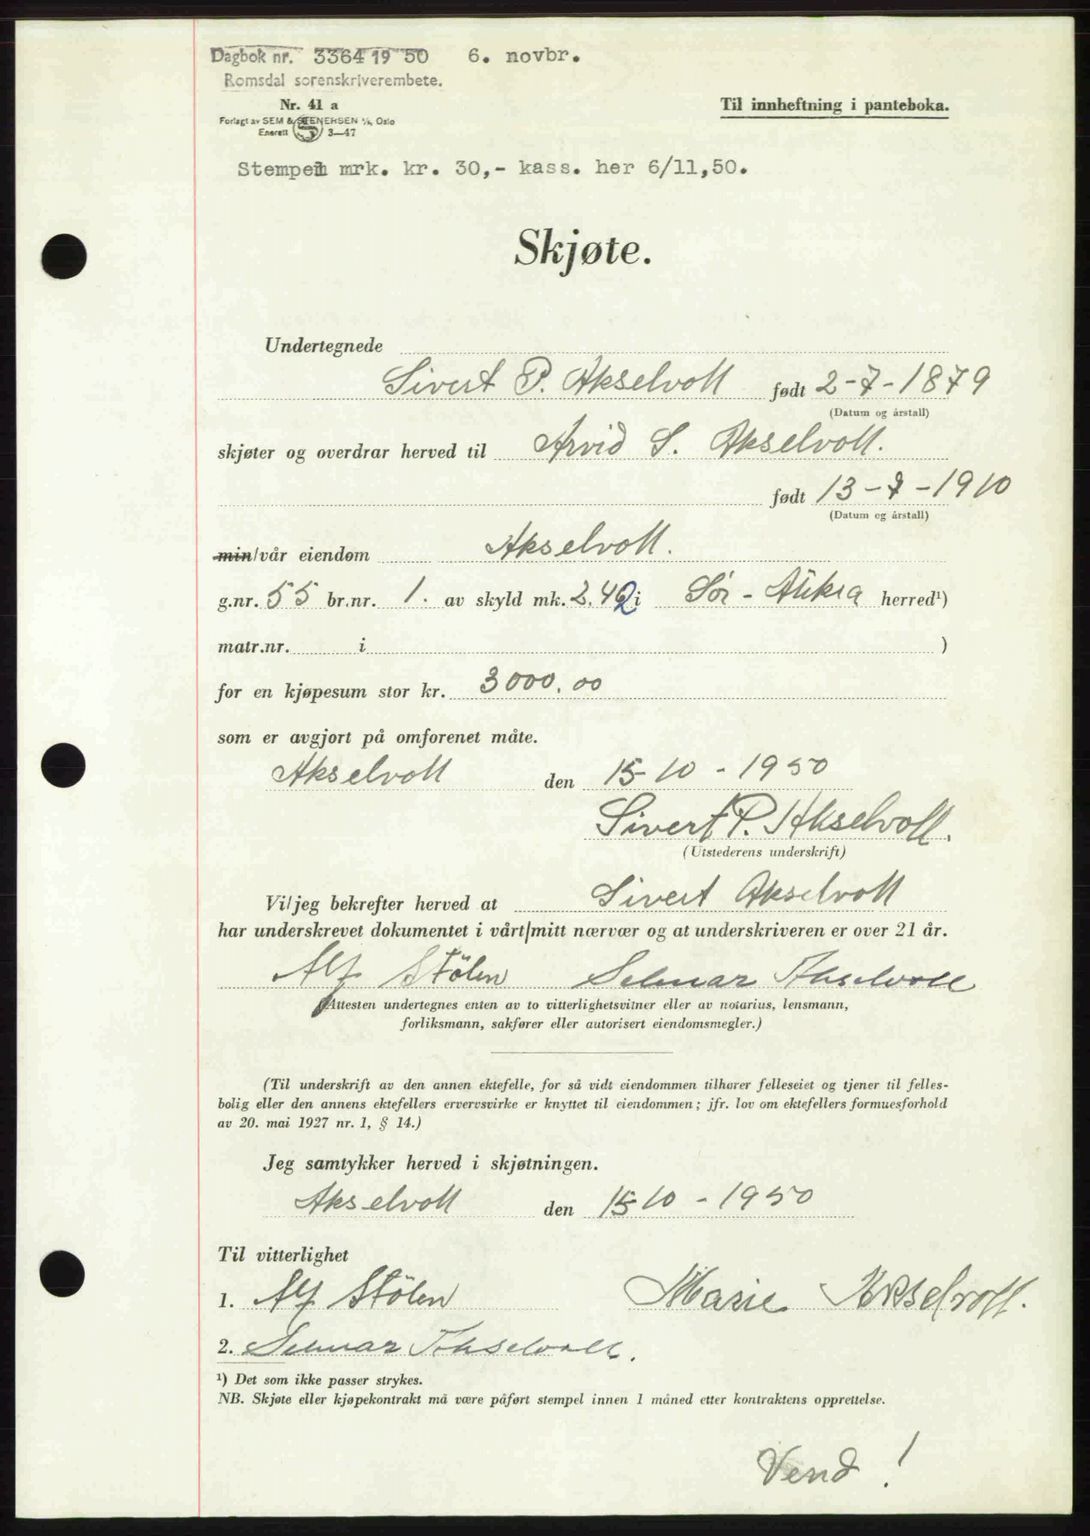 Dagbok nr. 3364 19 50 6. novbr.
Romsdal sorenskriverembete.
Nr. 41 a
Til innheftning i panteboka.
Forlagt av SEM & STENERSEN A/S, Oslo
Enerett 3—47
Stempelm mrk. kr. 30,- kass. her 6/11,50.
Skjøte.
Undertegnede
Sivert P. Akselvoll født 2-7-1879
(Datum og årstall)
skjøter og overdrar herved til Arvid S. Akselvoll.
født 13-7-1910
(Datum og årstall)
min/vår eiendom Akselvoll.
g.nr. 55 br.nr. 1. av skyld mk. 2.42 i Sør-Aukra herred¹)
matr.nr. i )
for en kjøpesum stor kr. 3000.00
som er avgjort på omforenet måte.
Akselvoll den 15-10-1950
Sivert P. Akselvoll.
(Utstederens underskrift)
Vi/jeg bekrefter herved at Sivert Akselvoll
har underskrevet dokumentet i vårt/mitt nærvær og at underskriveren er over 21 år.
Alf Stölen Selmar Akselvoll
(Attesten undertegnes enten av to vitterlighetsvitner eller av notarius, lensmann,
forliksmann, sakfører eller autorisert eiendomsmegler.)
(Til underskrift av den annen ektefelle, for så vidt eiendommen tilhører felleseiet og tjener til felles-
bolig eller den annens ektefellers ervervsvirke er knyttet til eiendommen; jfr. lov om ektefellers formuesforhold
av 20. mai 1927 nr. 1, § 14.)
Jeg samtykker herved i skjøtningen.
Akselvoll den 15-10-1950
Til vitterlighet
1. Alf Stölen Marie Akselvoll.
2. Selmar Akselvoll.
¹) Det som ikke passer strykes.
NB. Skjøte eller kjøpekontrakt må være påført stempel innen 1 måned etter kontraktens opprettelse.
Vend!